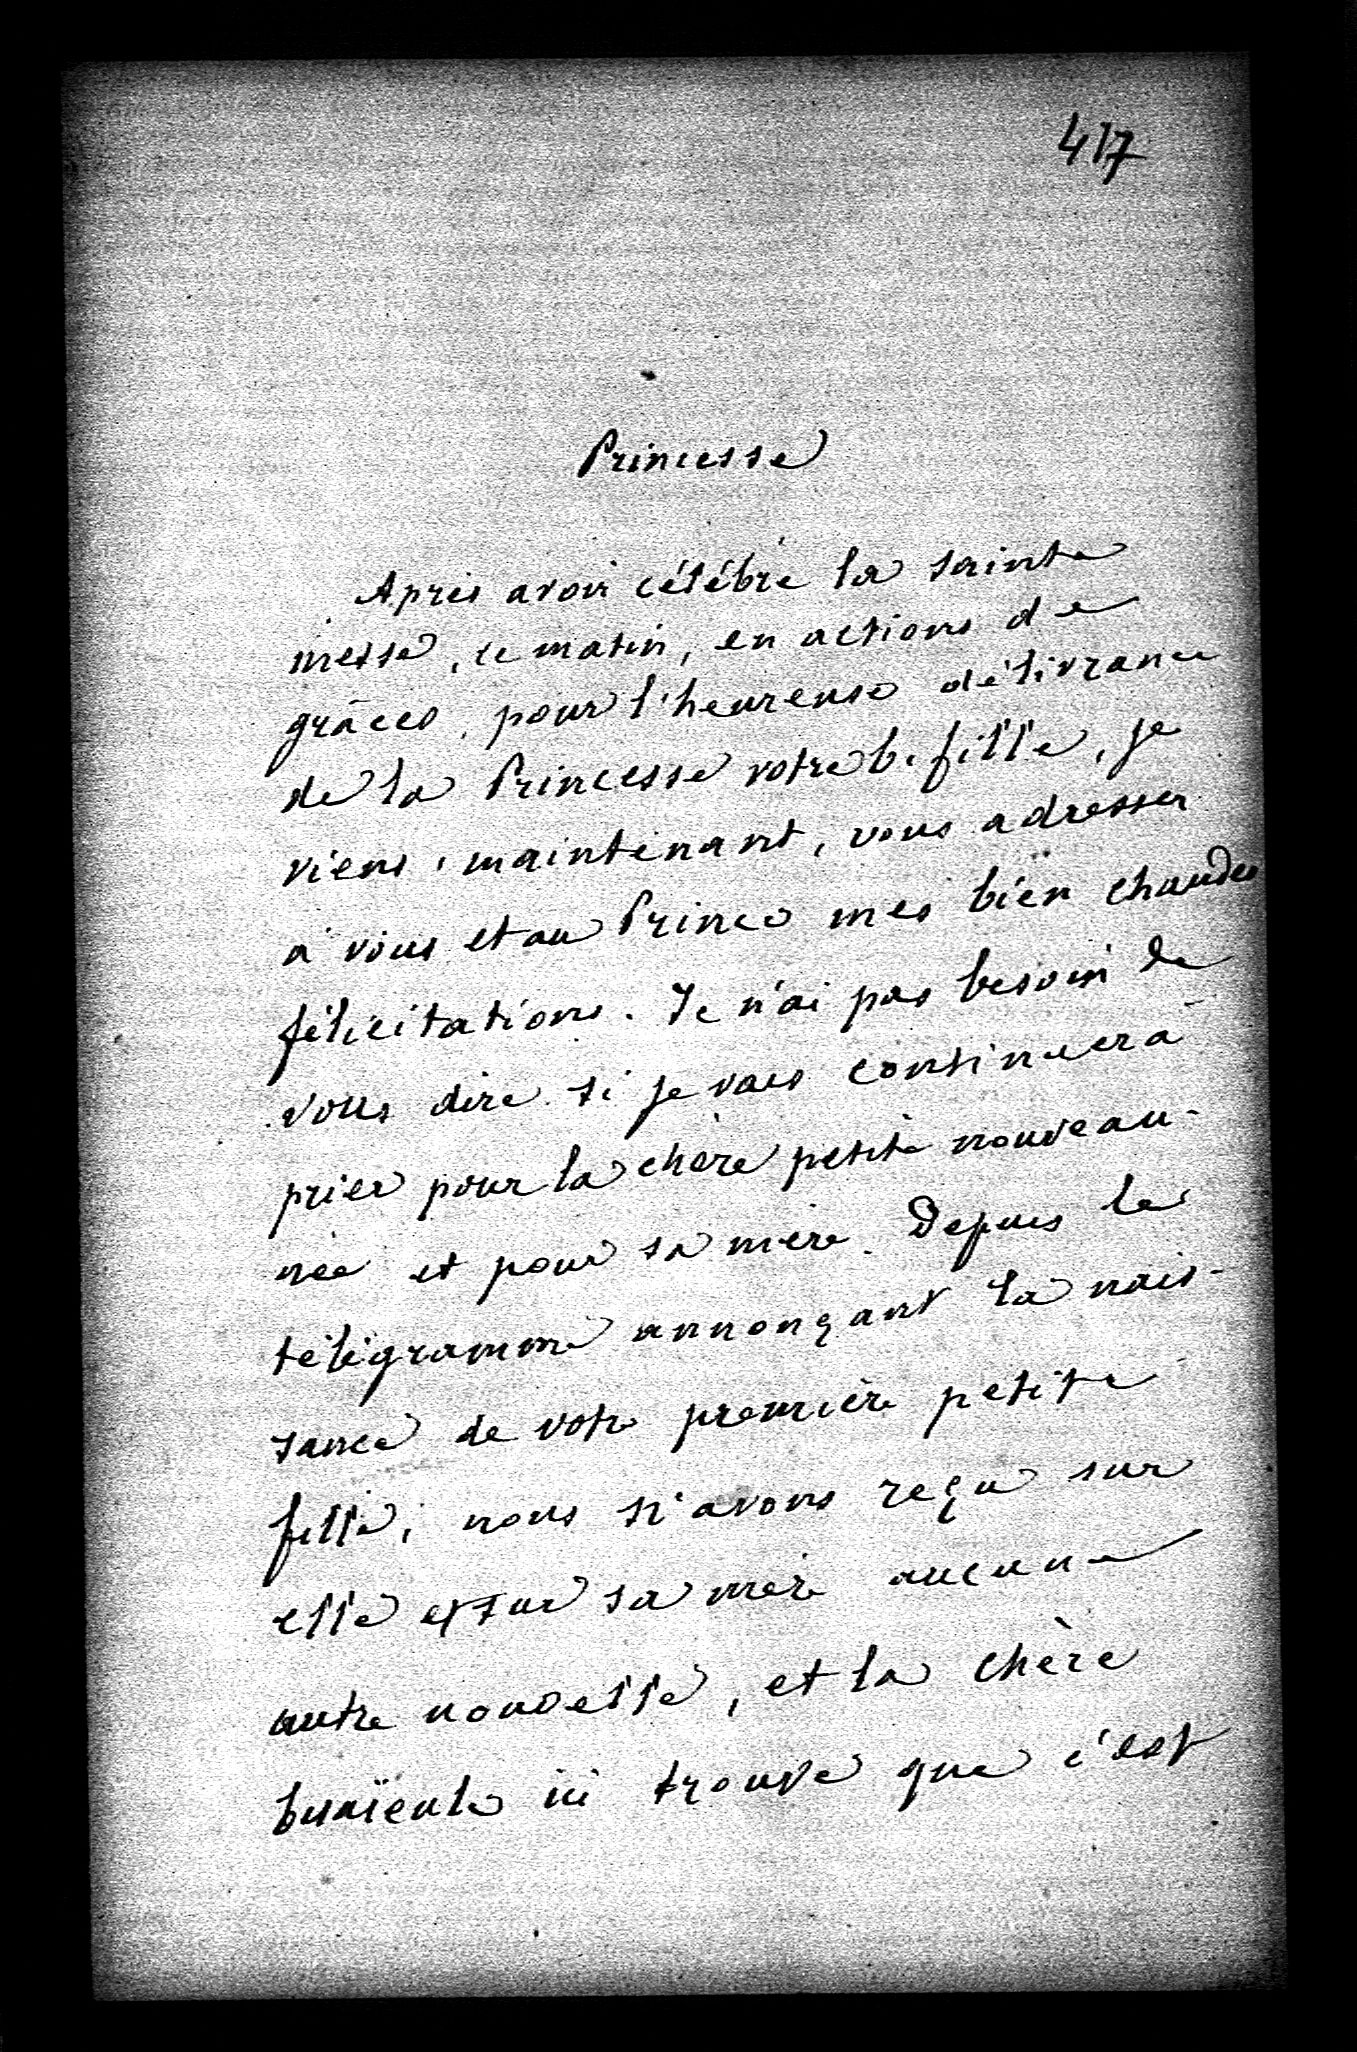 417
Princesse
Après avoir célébré la sainte
messe, ce matin, en actions de
grâces, pour l'heureuse délivrance
de la Princesse votre b. fille, je
viens, maintenant, vous adresser
à vous et au Prince mes bien chaudes
félicitations. Je n'ai pas besoin de
vous dire si je vais continuer à
prier pour la chère petite nouveau-
née et pour sa mère. Depuis le
télégramme annonçant la nais-
sance de votre première petite
fille, nous n'avons reçu sur
elle et sur sa mère aucune
autre nouvelle, et la chère
bisaïeule ici trouve que c'est